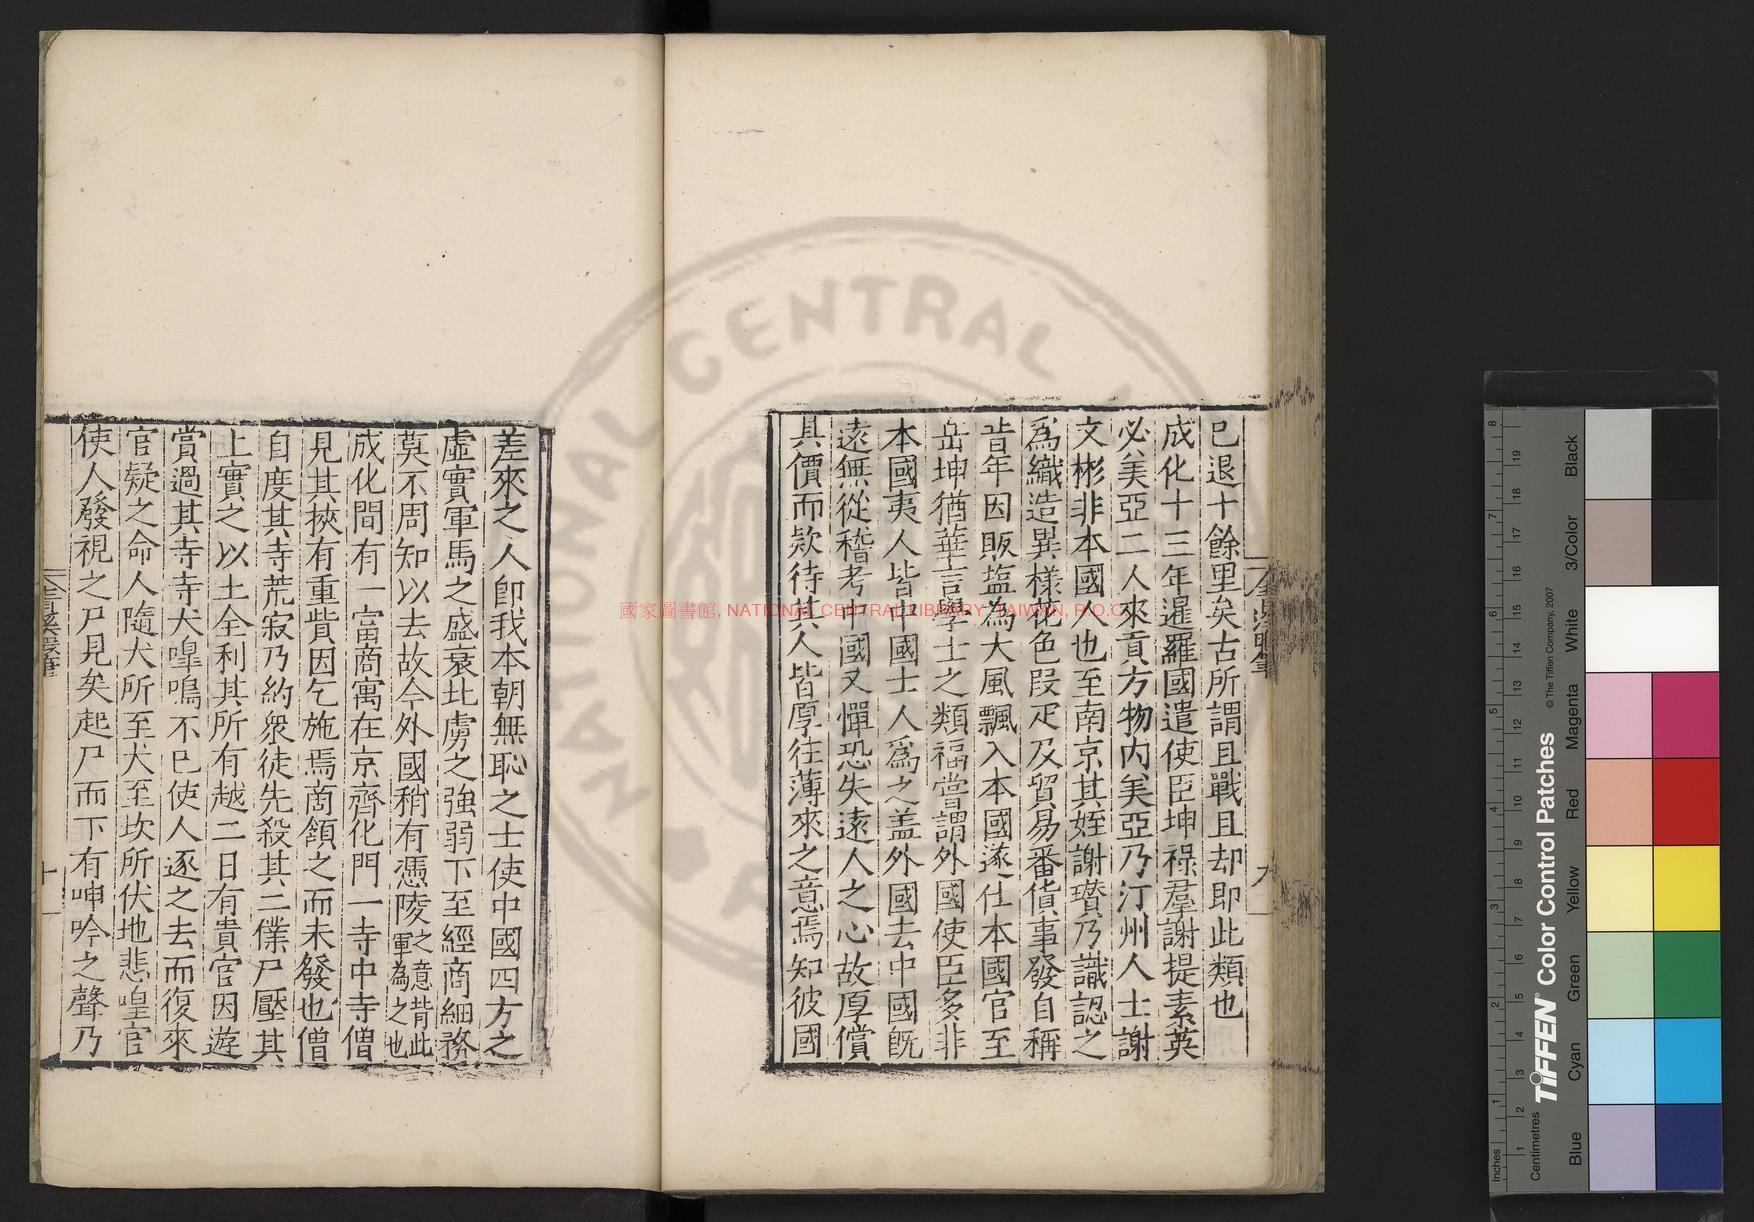 已退十餘里矣古所謂且戰且却即此類也
成化十三年暹羅國遣使臣坤祿羣謝提素英
必美亞二人來貢方物内美亞乃汀州人士謝
文彬非本國人也至南京其姪謝瓚乃識認之
爲織造異樣花色段疋及貿易番貨事發自稱
昔年因販塩為大風飄入本國遂仕本國官至
岳坤猶華言學士之類福嘗謂外國使臣多非
本國夷人皆中國士人爲之盖外國去中國既
遠無從稽考中國又憚恐失遠人之心故厚償
其價而欵待其人皆厚往薄來之意焉知彼國
九
差來之人卽我本朝無恥之士使中國四方之
虛實軍馬之盛衰北虜之強弱下至經商細務
莫不周知以去故今外國稍有憑陵之意皆此
軍為之也
成化間有一富商寓在京齊化門一寺中寺僧
見其挾有重貲因乞施焉商頷之而未發也僧
自度其寺荒寂乃約衆徒先殺其二僕尸壓其
上實之以土全利其所有越二日有貴官因遊
賞過其寺寺犬嘷鳴不已使人逐之去而復來
官疑之命人隨犬所至犬至坎所伏地悲嘷官
使人發視之尸見矣起尸而下有呻吟之聲乃
十
國家圖書館, NATIONAL CENTRAL LIBRARY, TAIWAN, R.O.C
NATIONAL CENTRAL
TIFFEN® Color Control Patches
© The Tiffen Company, 2007
Centimetres
Inches
Blue
Cyan
Green
Yellow
Red
Magenta
White
3/Color
Black